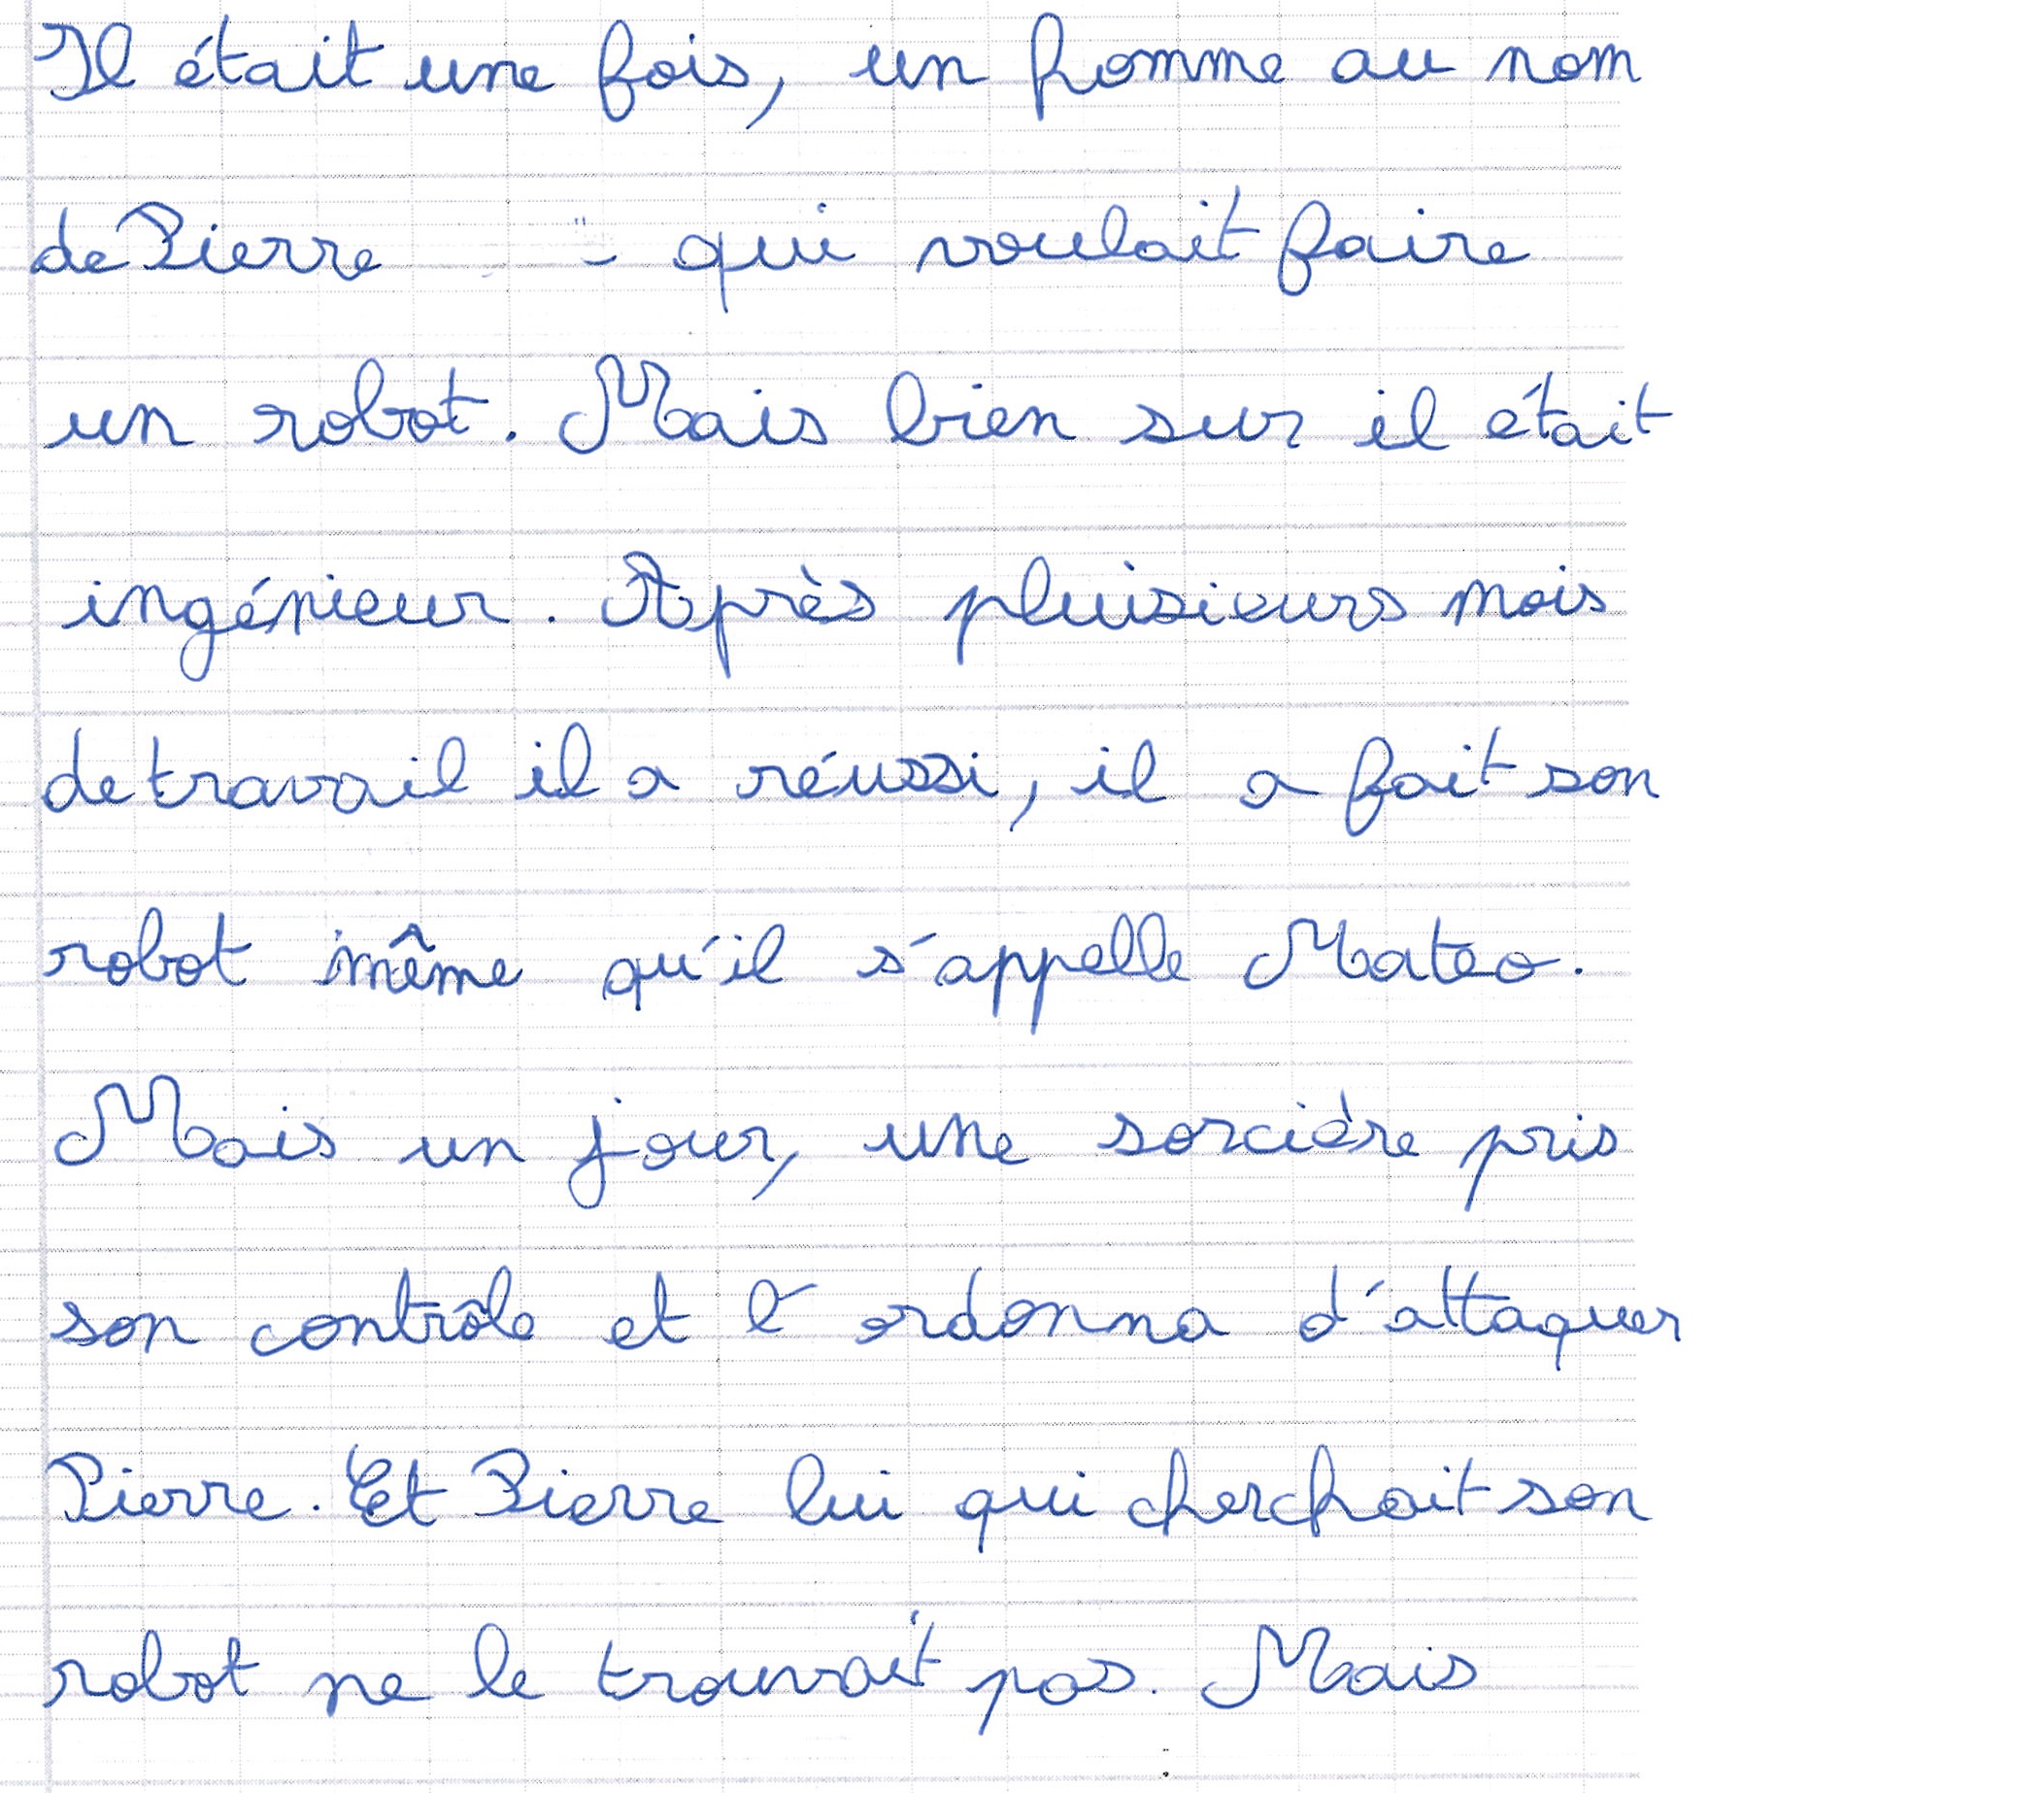 Il était une fois, un homme au nom
de Pierre qui voulait faire
un robot. Mais bien sur il était
ingénieur. Après pluisieurs mois
de travail il a réussi, il a fait son
robot même qu'il s'appelle Mateo.
Mais un jour, une sorcière pris
son contrôle et l'ordonna d'attaquer
Pierre. Et Pierre lui qui cherchait son
robot ne le trouvait pas. Mais